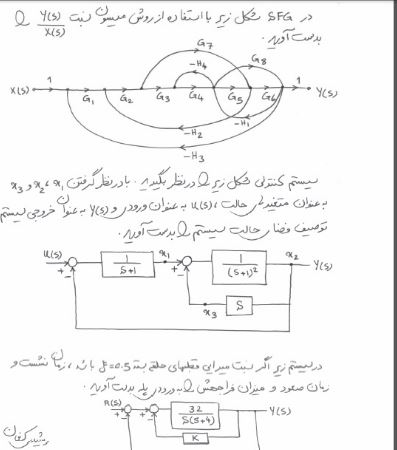 در SFG شکل زیر با استفاده از روش میسون نسبت Y(s)/X(s) را
بدست آورید.
G7
-H4
G8
X(s) 1 G1 G2 G3 G4 G5 G6 1 Y(s)
-H1
-H2
-H3
سیستم کنترلی شکل زیر را در نظر بگیرید. با در نظر گرفتن x1، x2 و x3
به عنوان متغیرهای حالت، u(s) به عنوان ورودی و Y(s) به عنوان خروجی سیستم
توصیف فضای حالت سیستم را بدست آورید.
U(s) + - 1/(s+1) x1 + - 1/(s+1)² x2 Y(s)
x3 S
در سیستم زیر اگر نسبت میرایی قطبهای حلقه بسته ξ=0.5 باشد، زمان نشست و
زمان صعود و میزان فراجهش را به ورودی پله بدست آورید.
R(s) + - + - 32/(s(s+4)) Y(s)
K